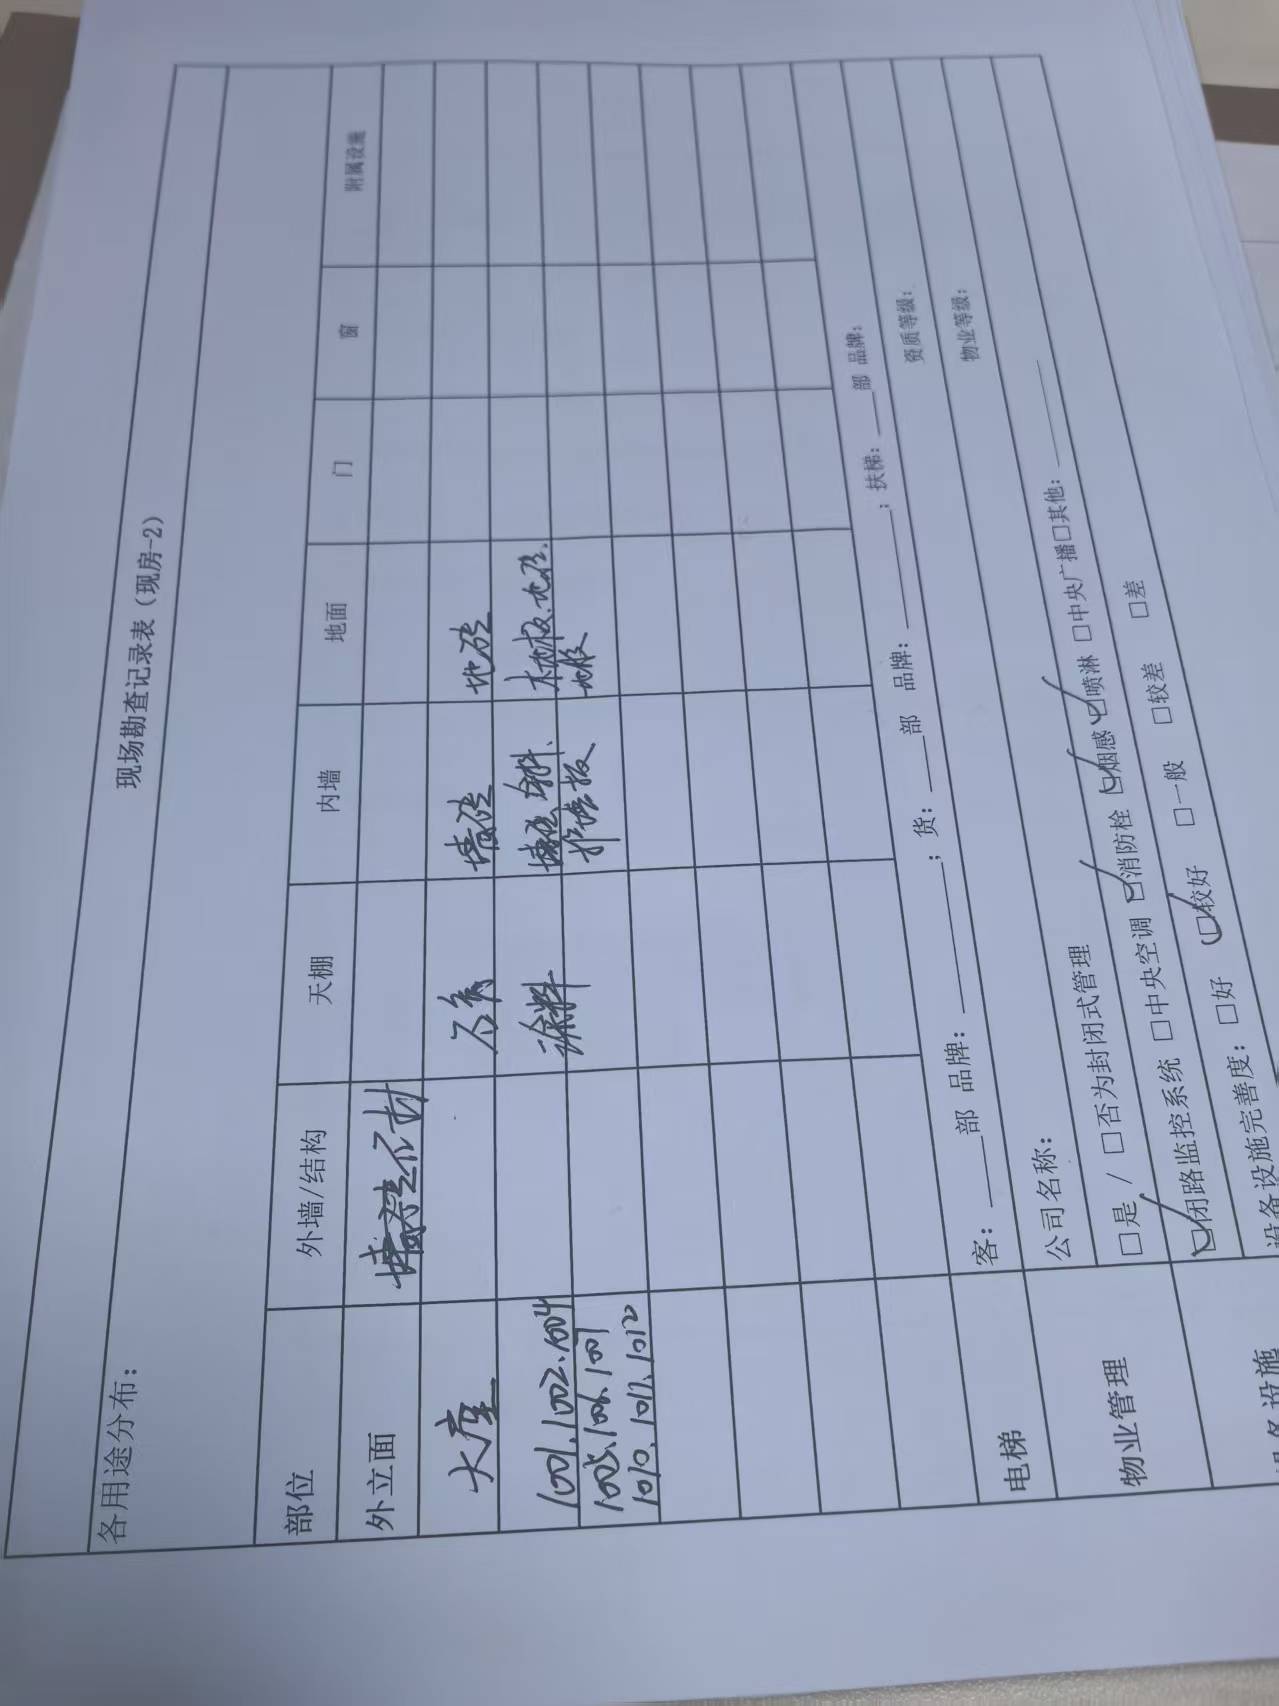 现场勘查记录表（现房-2）
各用途分布：
部位 外墙/结构 天棚 内墙 地面 门 窗 附属设施
外立面 墙砖
大堂 墙砖 地砖
1001.1002.1004 涂料 墙砖 涂料、 木地板、地砖、
1005.1006.1007 护墙板 地板
1010、1011、1012
电梯 客：____部 品牌：________；货：____部 品牌：________；扶梯：____部 品牌：
物业管理 公司名称： 资质等级：
□是 / □否为封闭式管理 物业等级：
☑闭路监控系统 □中央空调 ☑消防栓 ☑烟感 ☑喷淋 □中央广播□其他：________
设备设施完善度：□好 ☑较好 □一般 □较差 □差